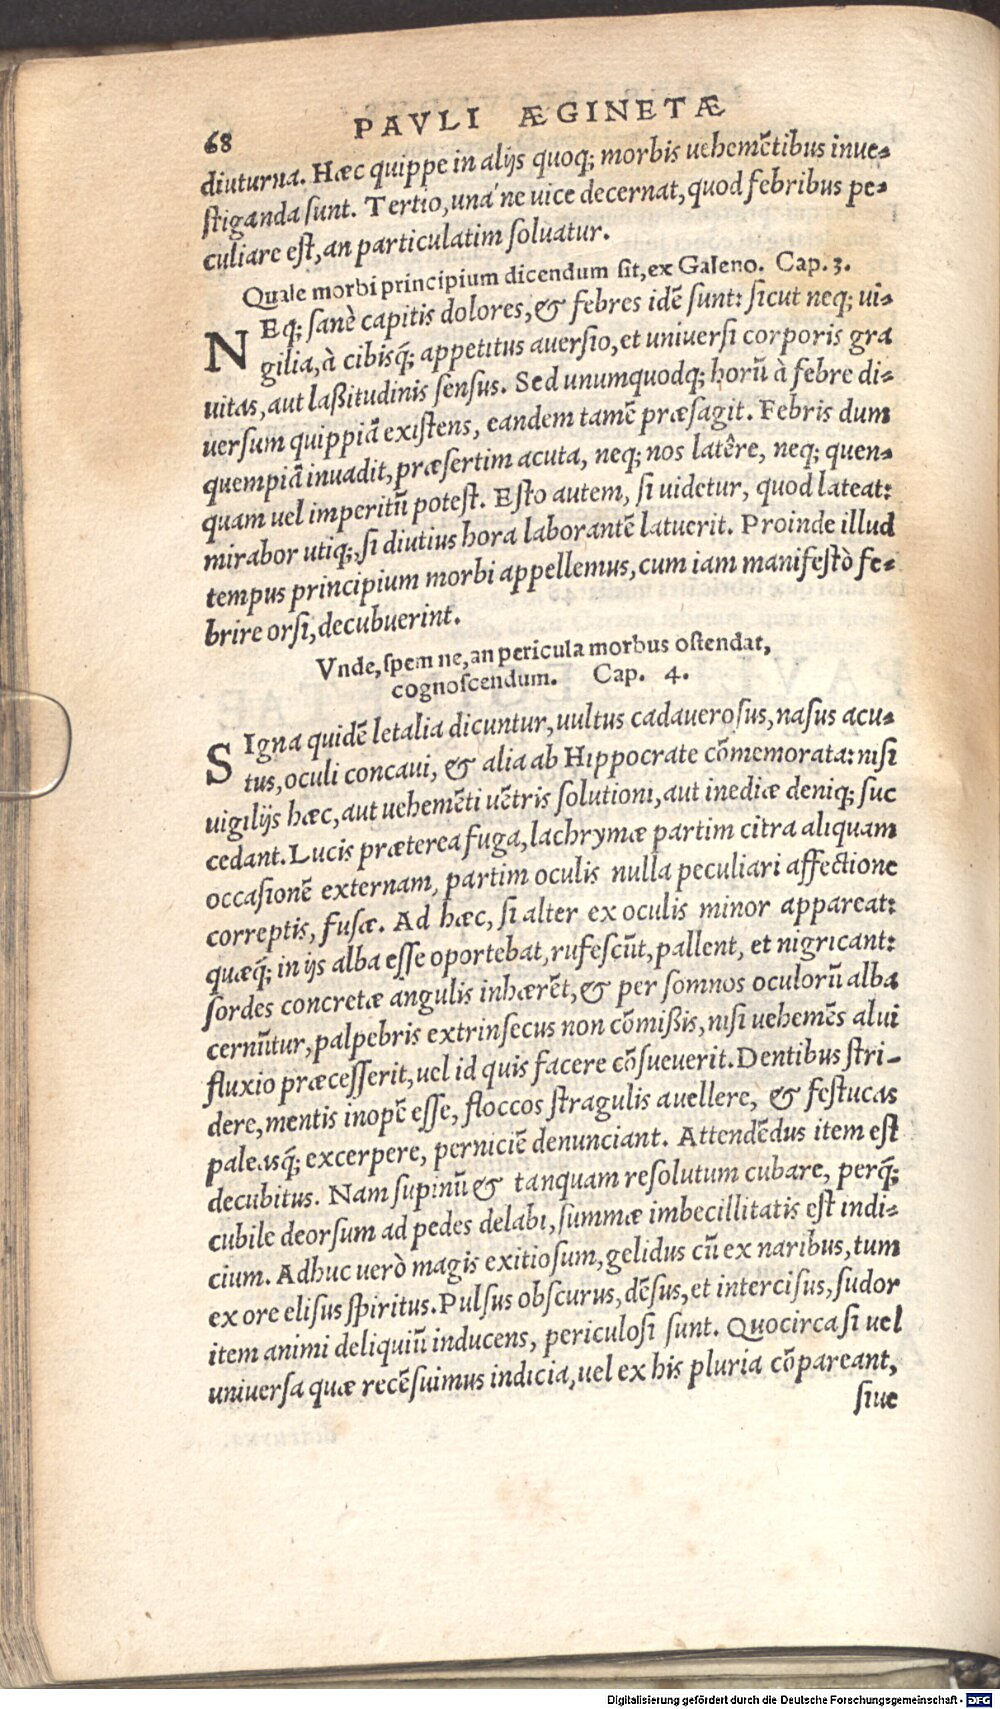 68 PAVLI ÆGINETÆ
diuturna. Hæc quippe in alijs quoq; morbis uehemẽtibus inue-
ſtiganda ſunt. Tertio, una´ ne uice decernat, quod febribus pe-
culiare eſt, an particulatim ſoluatur.
Quale morbi principium dicendum ſit, ex Galeno. Cap. 3.
NEq; ſanè capitis dolores, & febres idẽ sunt: ſicut neq; ui-
gilia, à cibisq́; appetitus auerſio, et uniuerſi corporis gra
uitas, aut laßitudinis ſenſus. Sed unumquodq; horũ à febre di-
uerſum quippiã exiſtens, eandem tamẽ præſagit. Febris dum
quempiã inuadit, præſertim acuta, neq; nos latêre, neq; quen-
quam uel imperitũ poteſt. Eſto autem, ſi uidetur, quod lateat:
mirabor utiq;, ſi diutius hora laborantẽ latuerit. Proinde illud
tempus principium morbi appellemus, cum iam manifeſtò fe-
brire orſi, decubuerint.
Vnde, ſpem ne, an pericula morbus oſtendat,
cognoſcendum. Cap. 4.
SIgna quidẽ letalia dicuntur, uultus cadaueroſus, naſus acu-
tus, oculi concaui, & alia ab Hippocrate cõmemorata: niſi
uigilijs hæc, aut uehemẽti uẽtris ſolutioni, aut inediæ deniq; ſuc
cedant. Lucis præterea fuga, lachrymæ partim citra aliquam
occaſionẽ externam, partim oculis nulla peculiari affectione
correptis, fuſæ. Ad hæc, ſi alter ex oculis minor appareat:
quæq́; in ijs alba eſſe oportebat, rufeſcũt, pallent, et nigricant:
ſordes concretæ angulis inhærẽt, & per ſomnos oculorũ alba
cernũtur, palpebris extrinſecus non cõmißis, niſi uehemẽs alui
fluxio præceſſerit, uel id quis facere cõſueuerit. Dentibus ſtri-
dere, mentis inopẽ eſſe, floccos ſtragulis auellere, & feſtucas
paleasq́; excerpere, perniciẽ denunciant. Attendẽdus item eſt
decubitus. Nam ſupinũ & tanquam reſolutum cubare, perq́;
cubile deorſum ad pedes delabi, ſummæ imbecillitatis eſt indi-
cium. Adhuc uerò magis exitioſum, gelidus cũ ex naribus, tum
ex ore eliſus ſpiritus. Pulſus obſcurus, dẽſus, et interciſus, ſudor
item animi deliquiũ inducens, periculoſi ſunt. Quocirca ſi uel
uniuerſa quæ recẽſuimus indicia, uel ex his pluria cõpareant,
ſiue
Digitalisierung gefördert durch die Deutsche Forschungsgemeinschaft - DFG